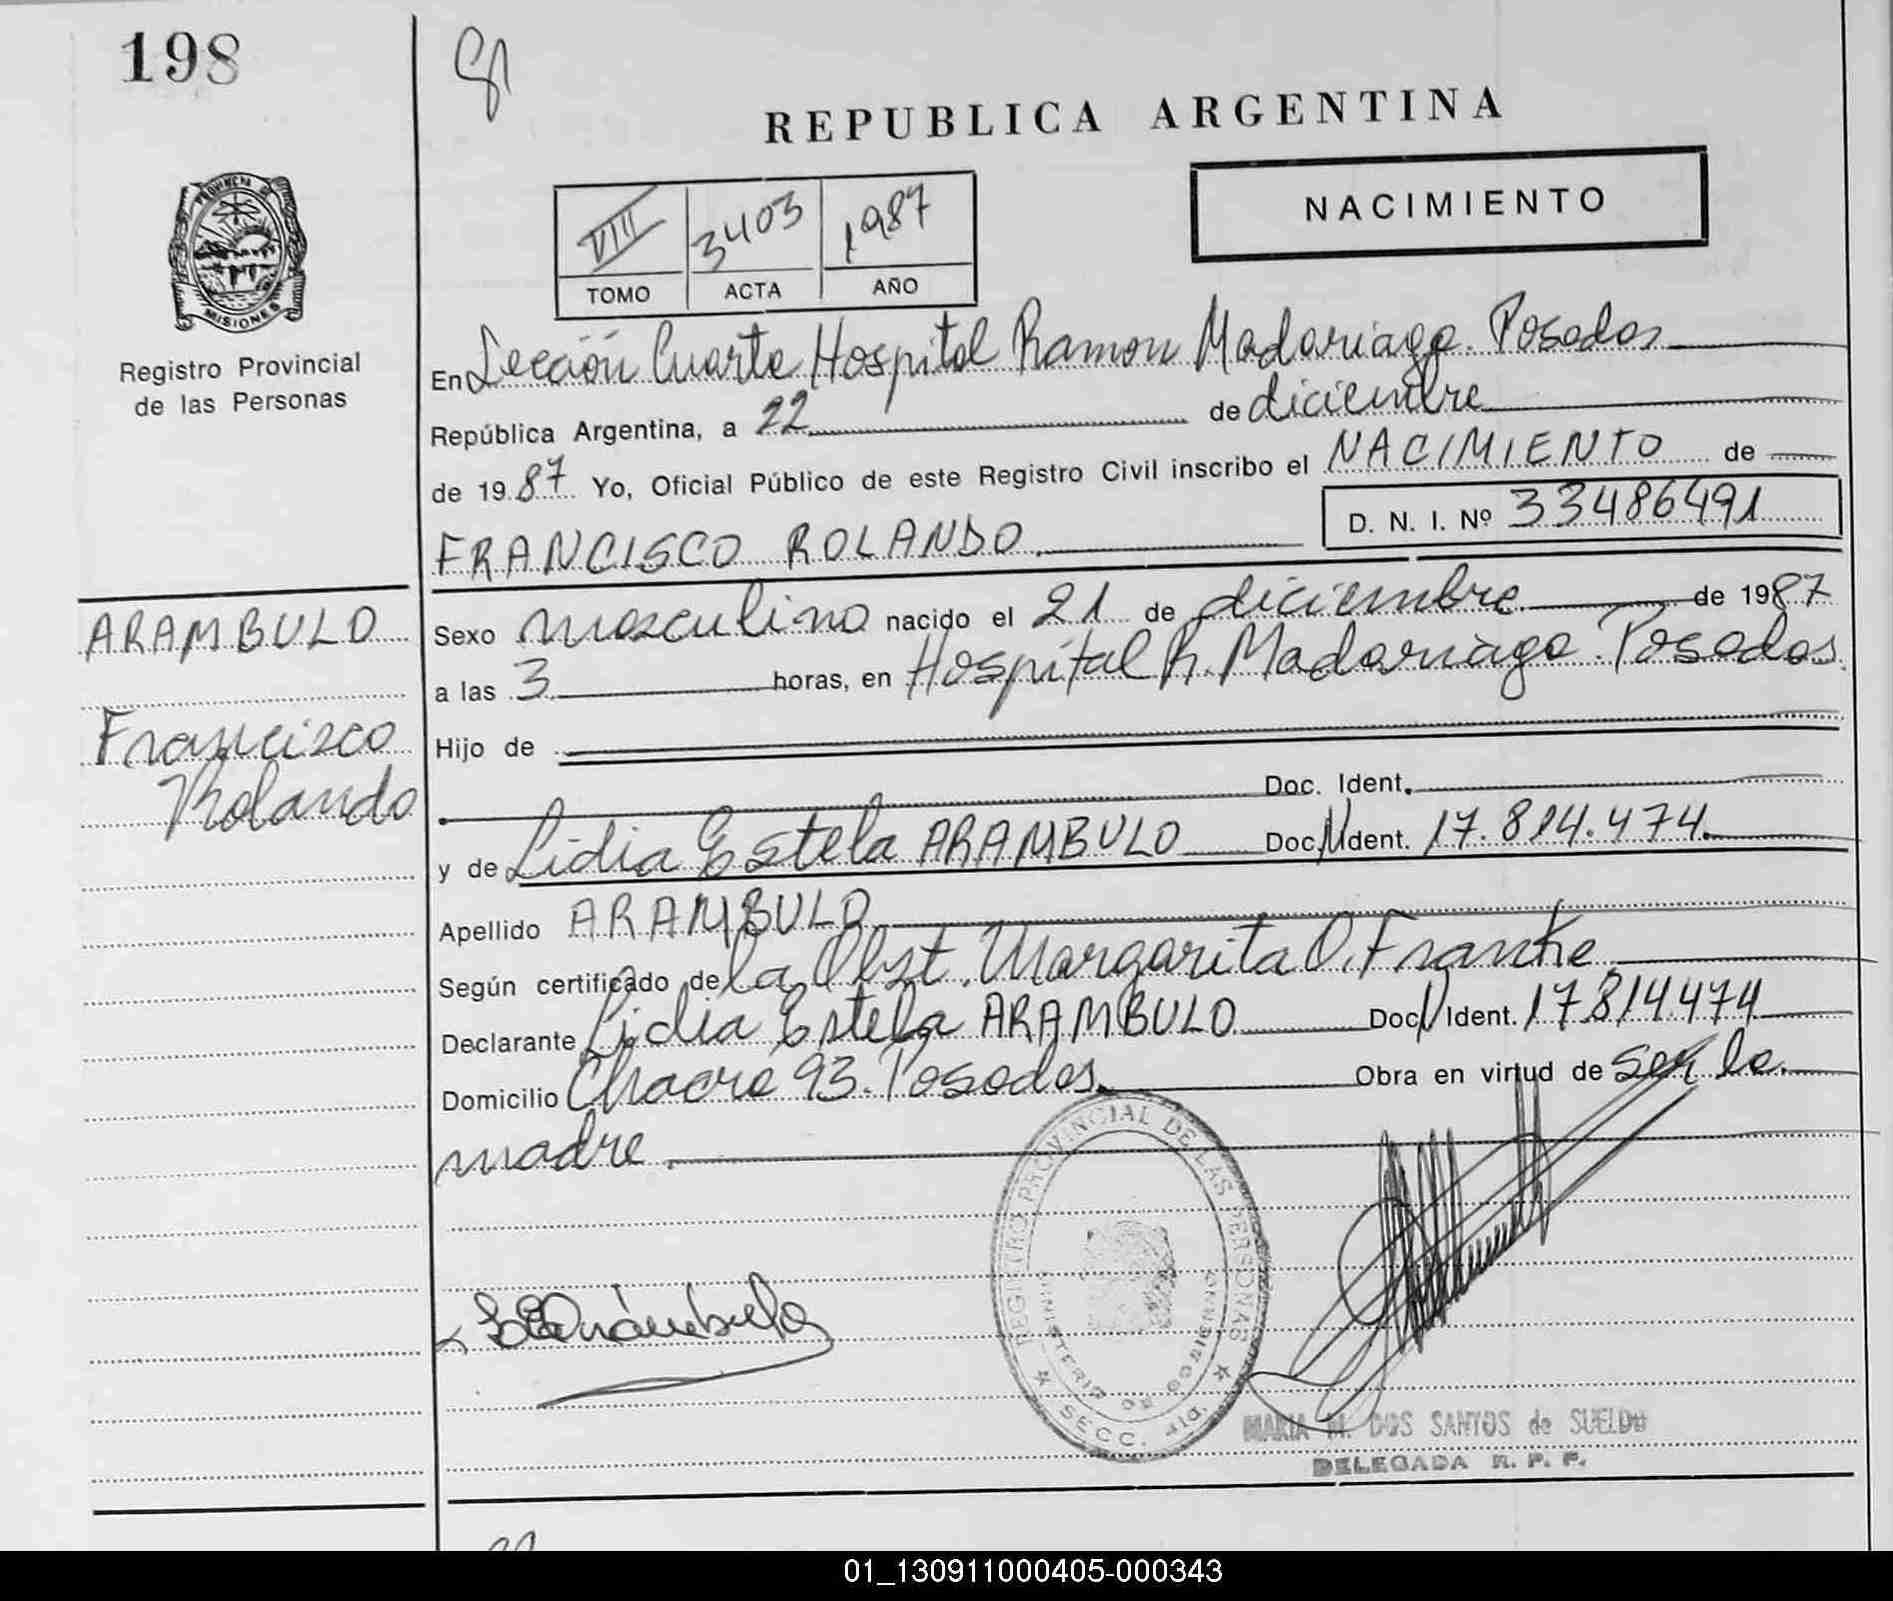 198
REPUBLICA ARGENTINA
NACIMIENTO
VIII 3403 1987
TOMO ACTA AÑO
PROVINCIA DE
MISIONES
Registro Provincial
de las Personas
En Sección Cuarta Hospital Ramon Madariaga. Posadas
República Argentina, a 22 de diciembre
de 1987 Yo, Oficial Público de este Registro Civil inscribo el NACIMIENTO de
FRANCISCO ROLANDO. D. N. I. Nº 33486491
ARAMBULO
Francisco
Rolando
Sexo masculino nacido el 21 de diciembre de 1987
a las 3 horas, en Hospital R. Madariaga. Posadas.
Hijo de
Doc. Ident.
y de Lidia Estela ARAMBULO Doc. N Ident. 17.814.474.
Apellido ARAMBULO
Según certificado de la Obst. Margarita O. Franke
Declarante Lidia Estela ARAMBULO Doc. N Ident. 17814474
Domicilio Chacra 93. Posadas. Obra en virtud de ser la
madre.
REGISTRO PROVINCIAL DE LAS PERSONAS
MINISTERIO DE GOBIERNO
SECC. 4ta.
MARIA M. DOS SANTOS de SUELDO
DELEGADA R. P. P.
01_130911000405-000343